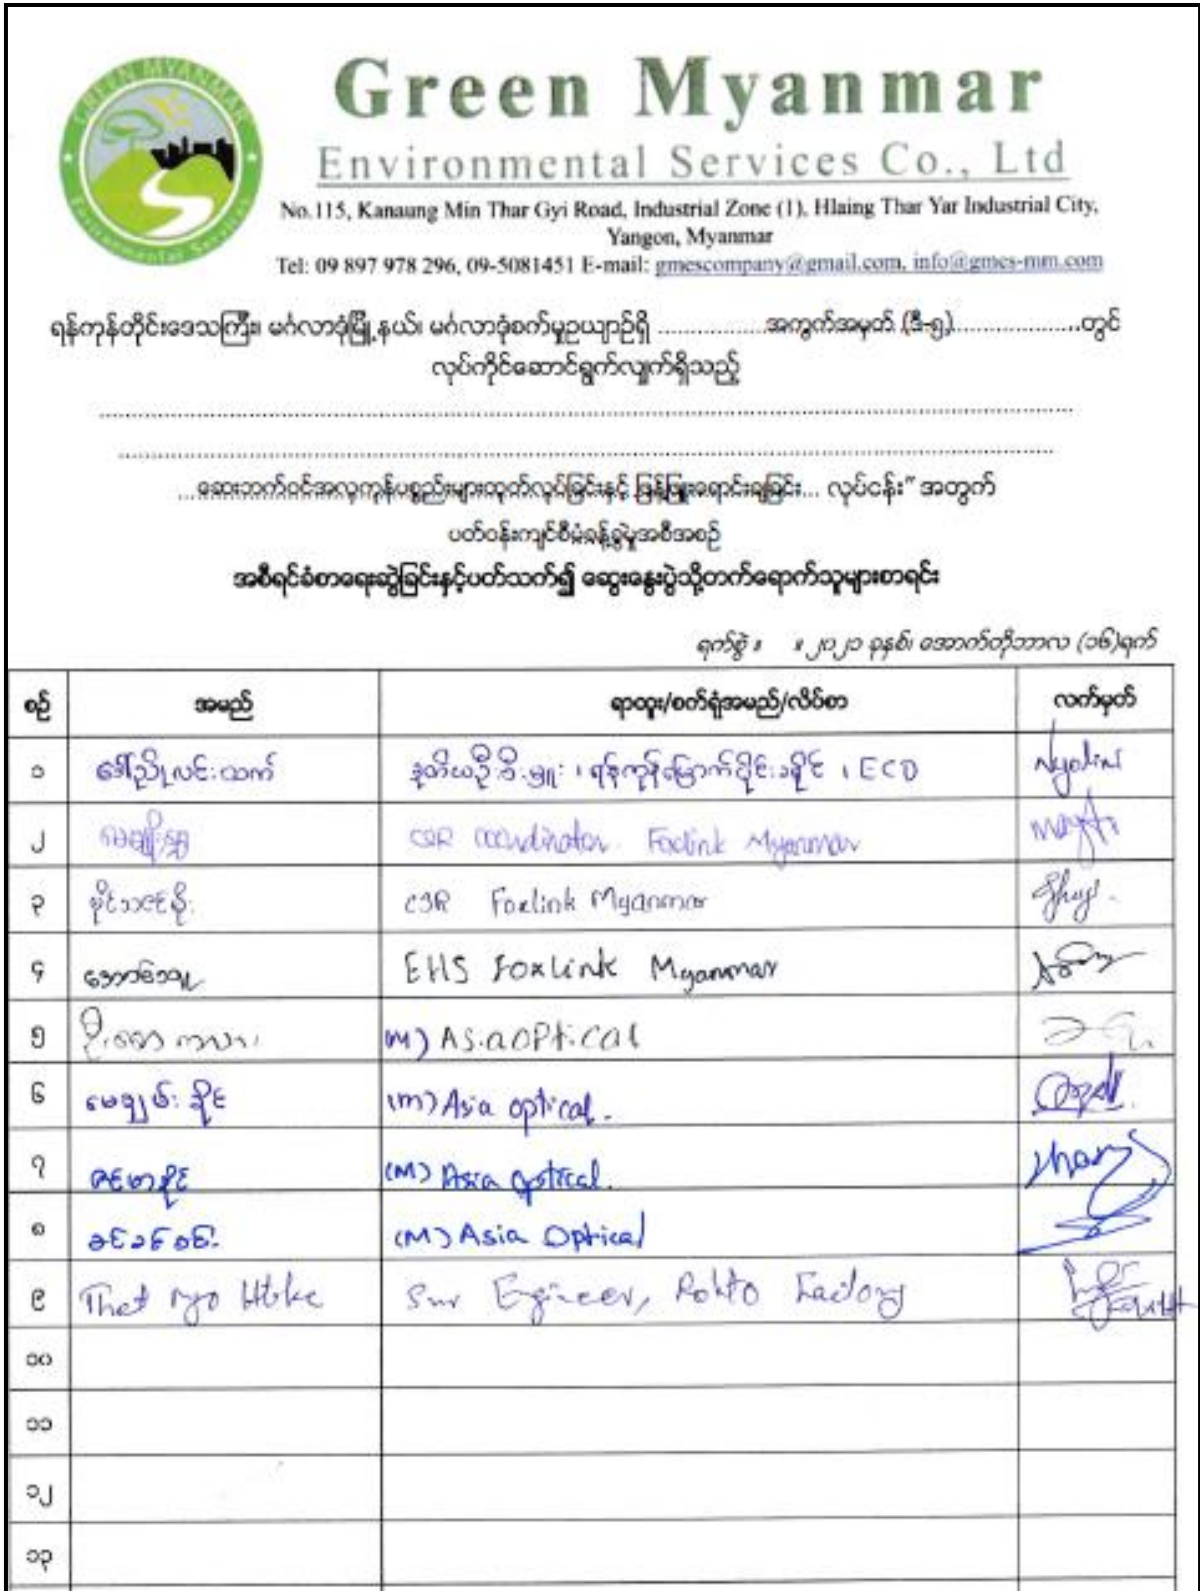 GREEN MYANMAR
Environmental Services
Green Myanmar
Environmental Services Co., Ltd
No.115, Kanaung Min Thar Gyi Road, Industrial Zone (1), Hlaing Thar Yar Industrial City,
Yangon, Myanmar
Tel: 09 897 978 296, 09-5081451 E-mail: gmescompany@gmail.com, info@gmes-mm.com
ရန်ကုန်တိုင်းဒေသကြီး၊ မင်္ဂလာဒုံမြို့နယ်၊ မင်္ဂလာဒုံစက်မှုဥယျာဉ်ရှိ ..................အကွက်အမှတ် (ဒီ-၅)......................တွင်
လုပ်ကိုင်ဆောင်ရွက်လျှက်ရှိသည့်
...ဆေးဘက်ဝင်အလှကုန်ပစ္စည်းများထုတ်လုပ်ခြင်းနှင့် ဖြန့်ဖြူးရောင်းချခြင်း... လုပ်ငန်း” အတွက်
ပတ်ဝန်းကျင်စီမံခန့်ခွဲမှုအစီအစဉ်
အစီရင်ခံစာရေးဆွဲခြင်းနှင့်ပတ်သက်၍ ဆွေးနွေးပွဲသို့တက်ရောက်သူများစာရင်း
ရက်စွဲ ။ ။ ၂၀၂၁ ခုနှစ်၊ အောက်တိုဘာလ (၁၆)ရက်
စဉ် အမည် ရာထူး/စက်ရုံအမည်/လိပ်စာ လက်မှတ်
၁ ဒေါ်ညိုလင်းထက် ဒုတိယဦးစီးမှူး ၊ ရန်ကုန်မြောက်ပိုင်းခရိုင် ၊ ECD Nyolin
၂ CSR Coordinator Foxlink Myanmar
၃ CSR Foxlink Myanmar
၄ အောင်သူ EHS Foxlink Myanmar
၅ (M) Asia OPtical
၆ မေချမ်းခိုင် (m) Asia optical.
၇ ဇင်မာခိုင် (M) Asia Optical.
၈ ခင်ခင်ဝင်း (M) Asia Optical
၉ Thet Myo Htike Snr Engineer, Rohto Factory
၁၀
၁၁
၁၂
၁၃